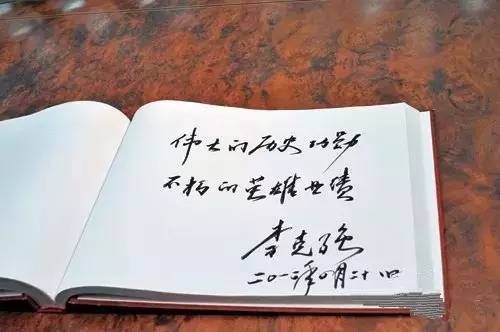 伟大的历史功勋
不朽的英雄业绩
李克强
二〇一二年四月二十八